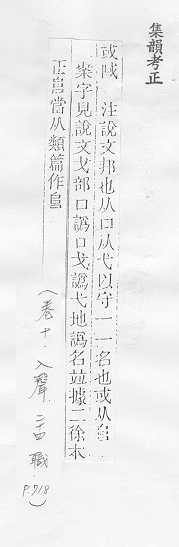 集韻考正
或𢧌 注説文邦也从口从弋以守一一名也或从𨸏
案字見說文戈部口譌口戈譌弋地譌名竝據二徐本
正𨸏當从類篇作𠂤
(卷十.入聲.二十四職
P.918)